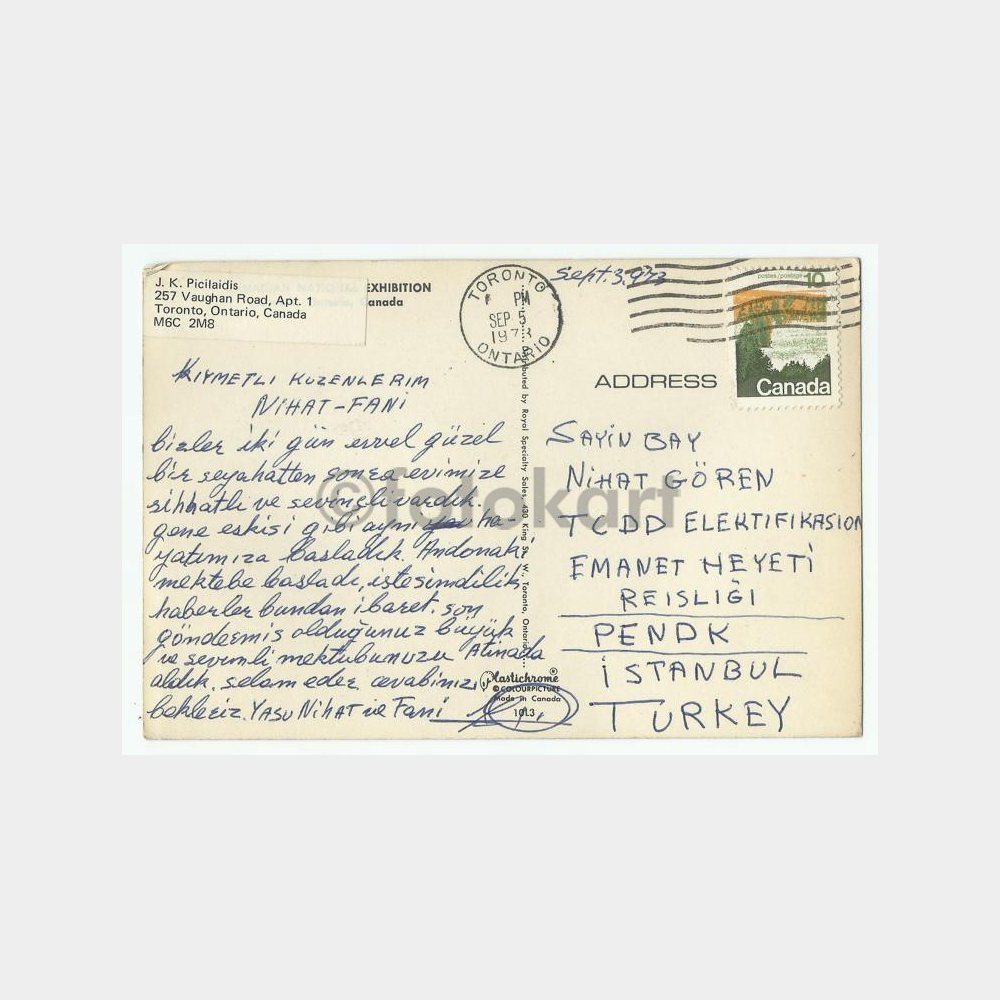 J. K. Picilaidis
257 Vaughan Road, Apt. 1
Toronto, Ontario, Canada
M6C 2M8
EXHIBITION
Canada
TORONTO
PM
SEP 5
1973
ONTARIO
Sept. 3. 973
postes/postage
10
Canada
KIYMETLI KUZENLERIM
NiHAT-FANi
bizler iki gün evvel güzel
bir seyahatten sonra evimize
sihhatlı ve sevinçli vardık.
gene eskisi gibi ayni ha-
yatımıza başladık. Andonaki
mektebe başladı, işte şimdilik
haberler bundan ibaret. son
göndermiş olduğunuz büyük
ve sevimli mektubunuzu Atinada
aldık. selam eder cevabinizi
bekleriz. YASU NiHAT ve Fani
Distributed by Royal Specialty Sales, 430 King St. W. Toronto, Ontario
Plastichrome®
© COLOURPICTURE
Made in Canada
10L3
ADDRESS
SAYiN BAY
NiHAT GÖREN
TCDD ELEKTIFIKASION
EMANET HEYETi
REISLIĞI
PENDK
iSTANBUL
TURKEY
©fotokart